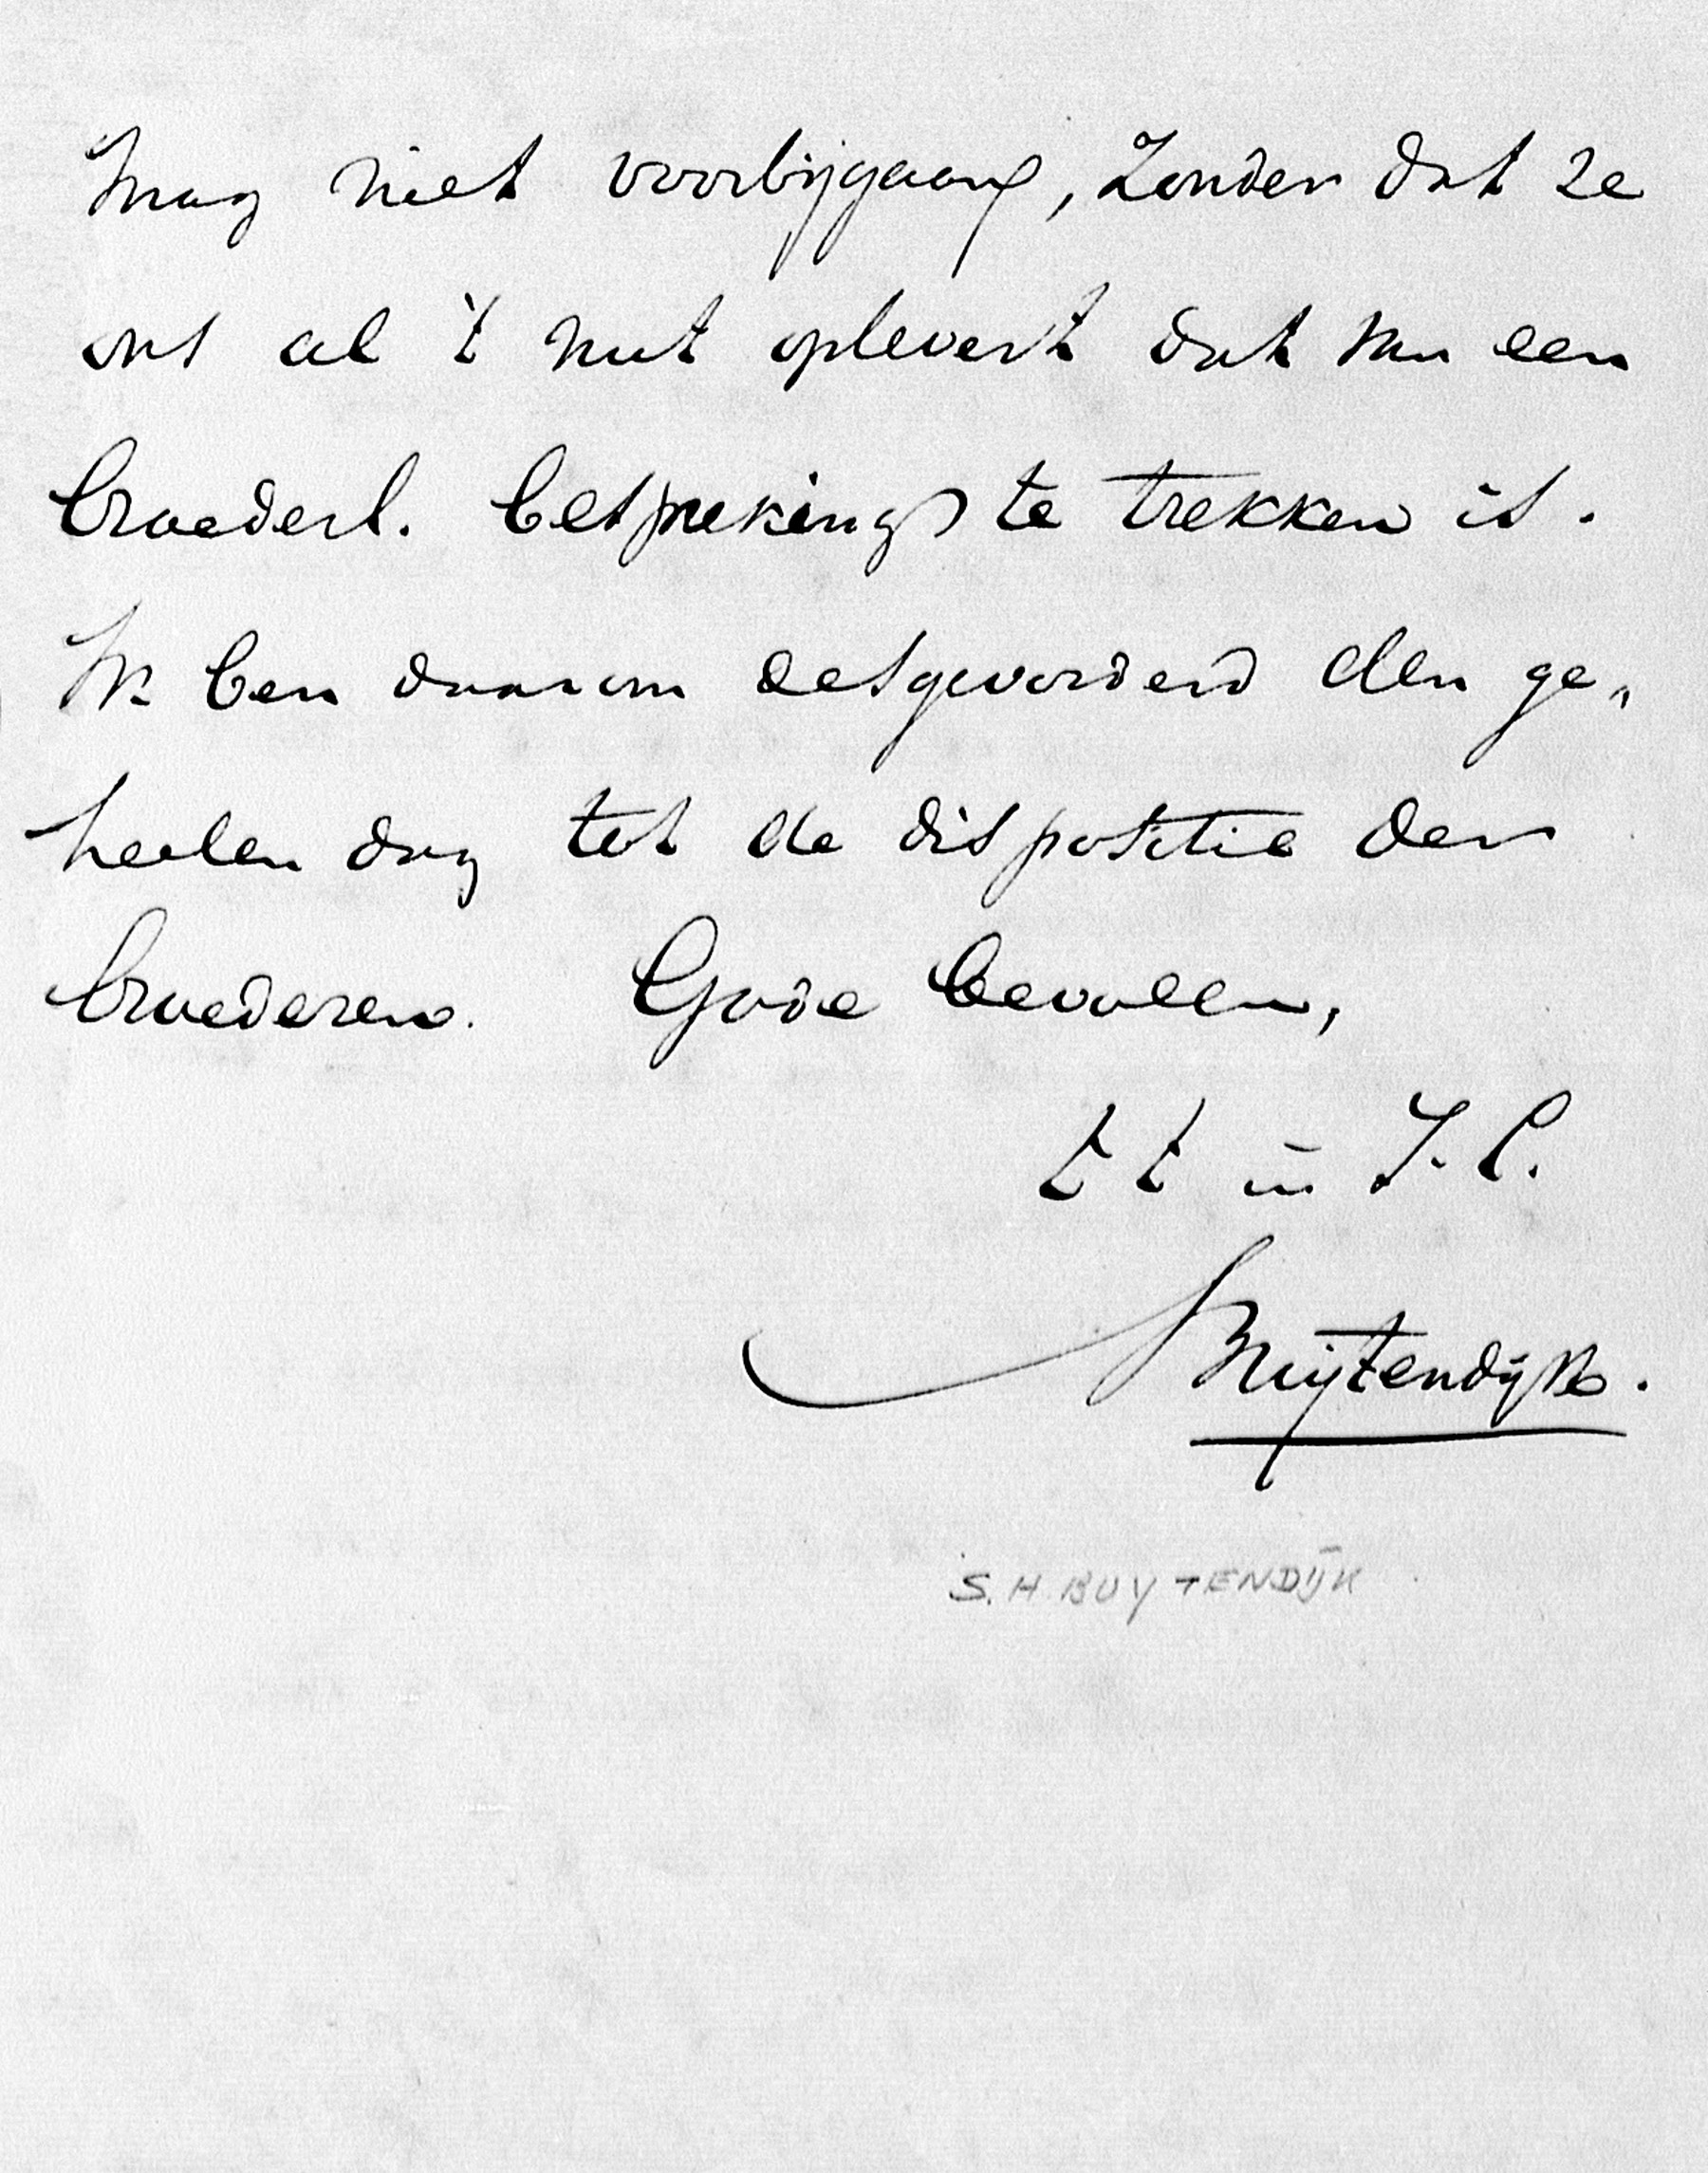 mag niet voorbijgaan, zonder dat ze
ons al 't nut oplevert dat van een
broederl. bespreking te trekken is.
Ik ben daarom desgevorderd den ge„
heelen dag tot de dispositie der
broederen. Gode bevolen,
t t in J. C.
Buytendijk.
S. H. BUYTENDIJK